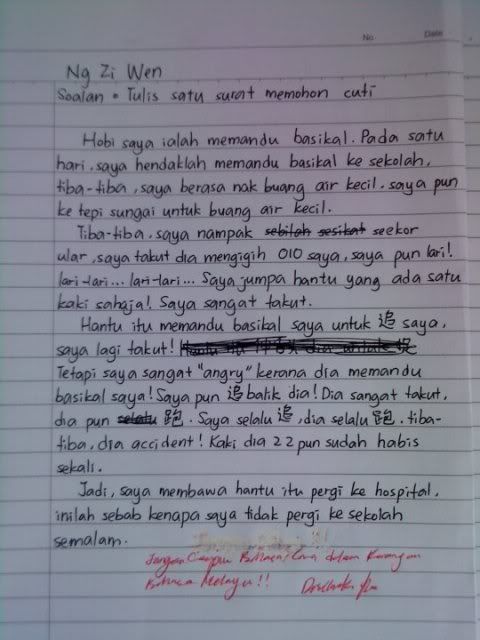 No.
Date
Ng Zi Wen
Soalan = Tulis satu surat memohon cuti
Hobi saya ialah memandu basikal. Pada satu
hari, saya hendaklah memandu basikal ke sekolah,
tiba-tiba, saya berasa nak buang air kecil. saya pun
ke tepi sungai untuk buang air kecil.
Tiba-tiba, saya nampak sebilah sesikat seekor
ular, saya takut dia mengigih 010 saya, saya pun lari!
lari-lari... lari-lari... Saya jumpa hantu yang ada satu
kaki sahaja! Saya sangat takut.
Hantu itu memandu basikal saya untuk 追 saya,
saya lagi takut!
Tetapi saya sangat "angry" kerana dia memandu
basikal saya! Saya pun 追 balik dia! Dia sangat takut,
dia pun 跑. Saya selalu 追, dia selalu 跑. tiba-
tiba, dia accident! Kaki dia 22 pun sudah habis
sekali.
Jadi, saya membawa hantu itu pergi ke hospital,
inilah sebab kenapa saya tidak pergi ke sekolah
semalam.
Jangan Campur Bahasa Cina dalam Karangan
Bahasa Melayu!!